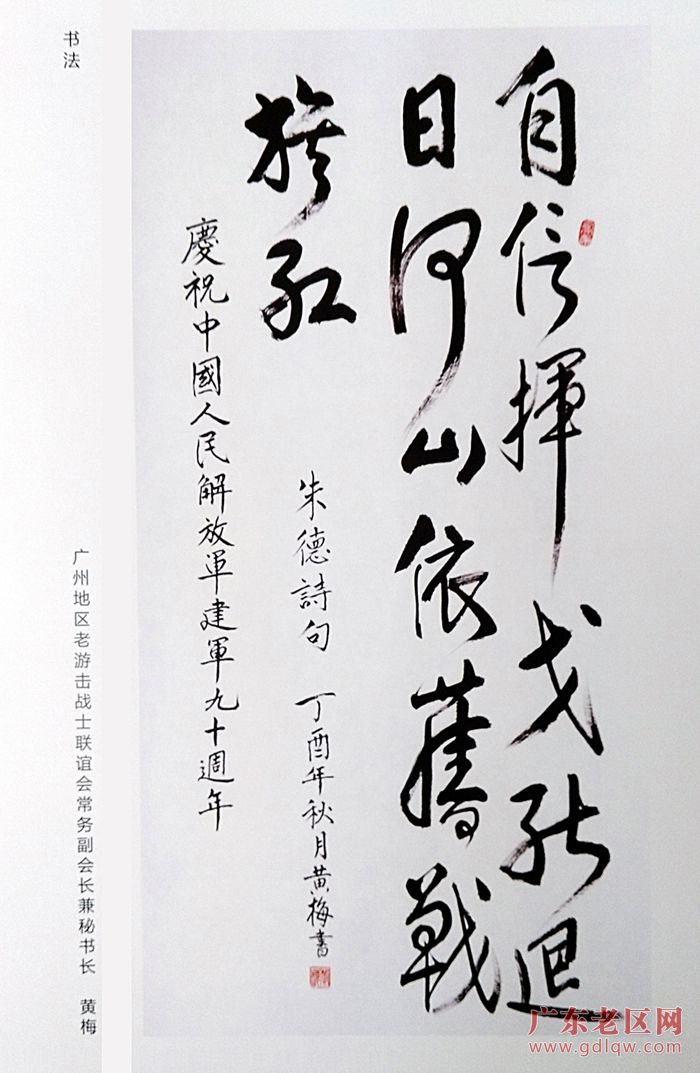 自信揮戈能迴
日河山依舊戰
旗紅
朱德詩句 丁酉年秋月黄梅書
慶祝中國人民解放軍建軍九十週年
书法
广州地区老游击战士联谊会常务副会长兼秘书长 黄梅
广东老区网
www.gdlqw.com